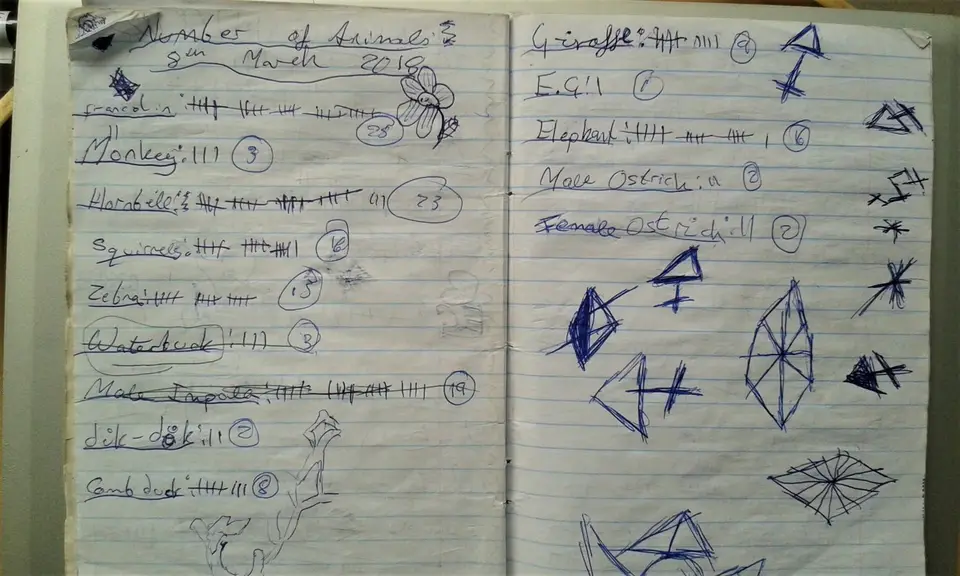 Number of Animals:
8th March 2019
francolin: 25
Monkey: ||| 3
Hornbill: 23
Squirrels: 16
Zebra: 15
Waterbuck: ||| 3
Male Impala: 19
dik-dik: || 2
Comb duck: 8
Giraffe: 9
E.G: | 1
Elephant: 16
Male Ostrich: || 2
Female Ostrich: || 2